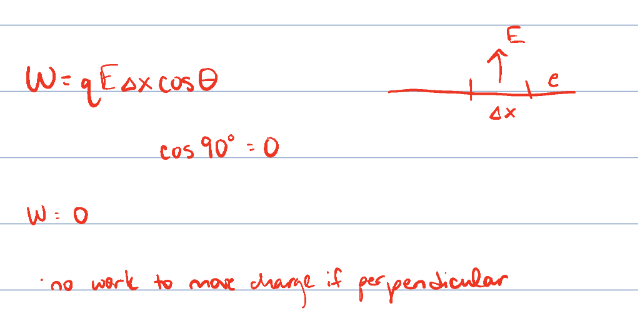 E
W = qEΔx cosθ
e
Δx
cos 90° = 0
W = 0
· no work to move charge if perpendicular